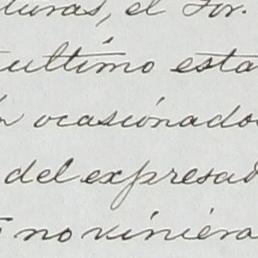 turas, el Sor.
ultimo esta
ocasionado
del expresad
no viniera